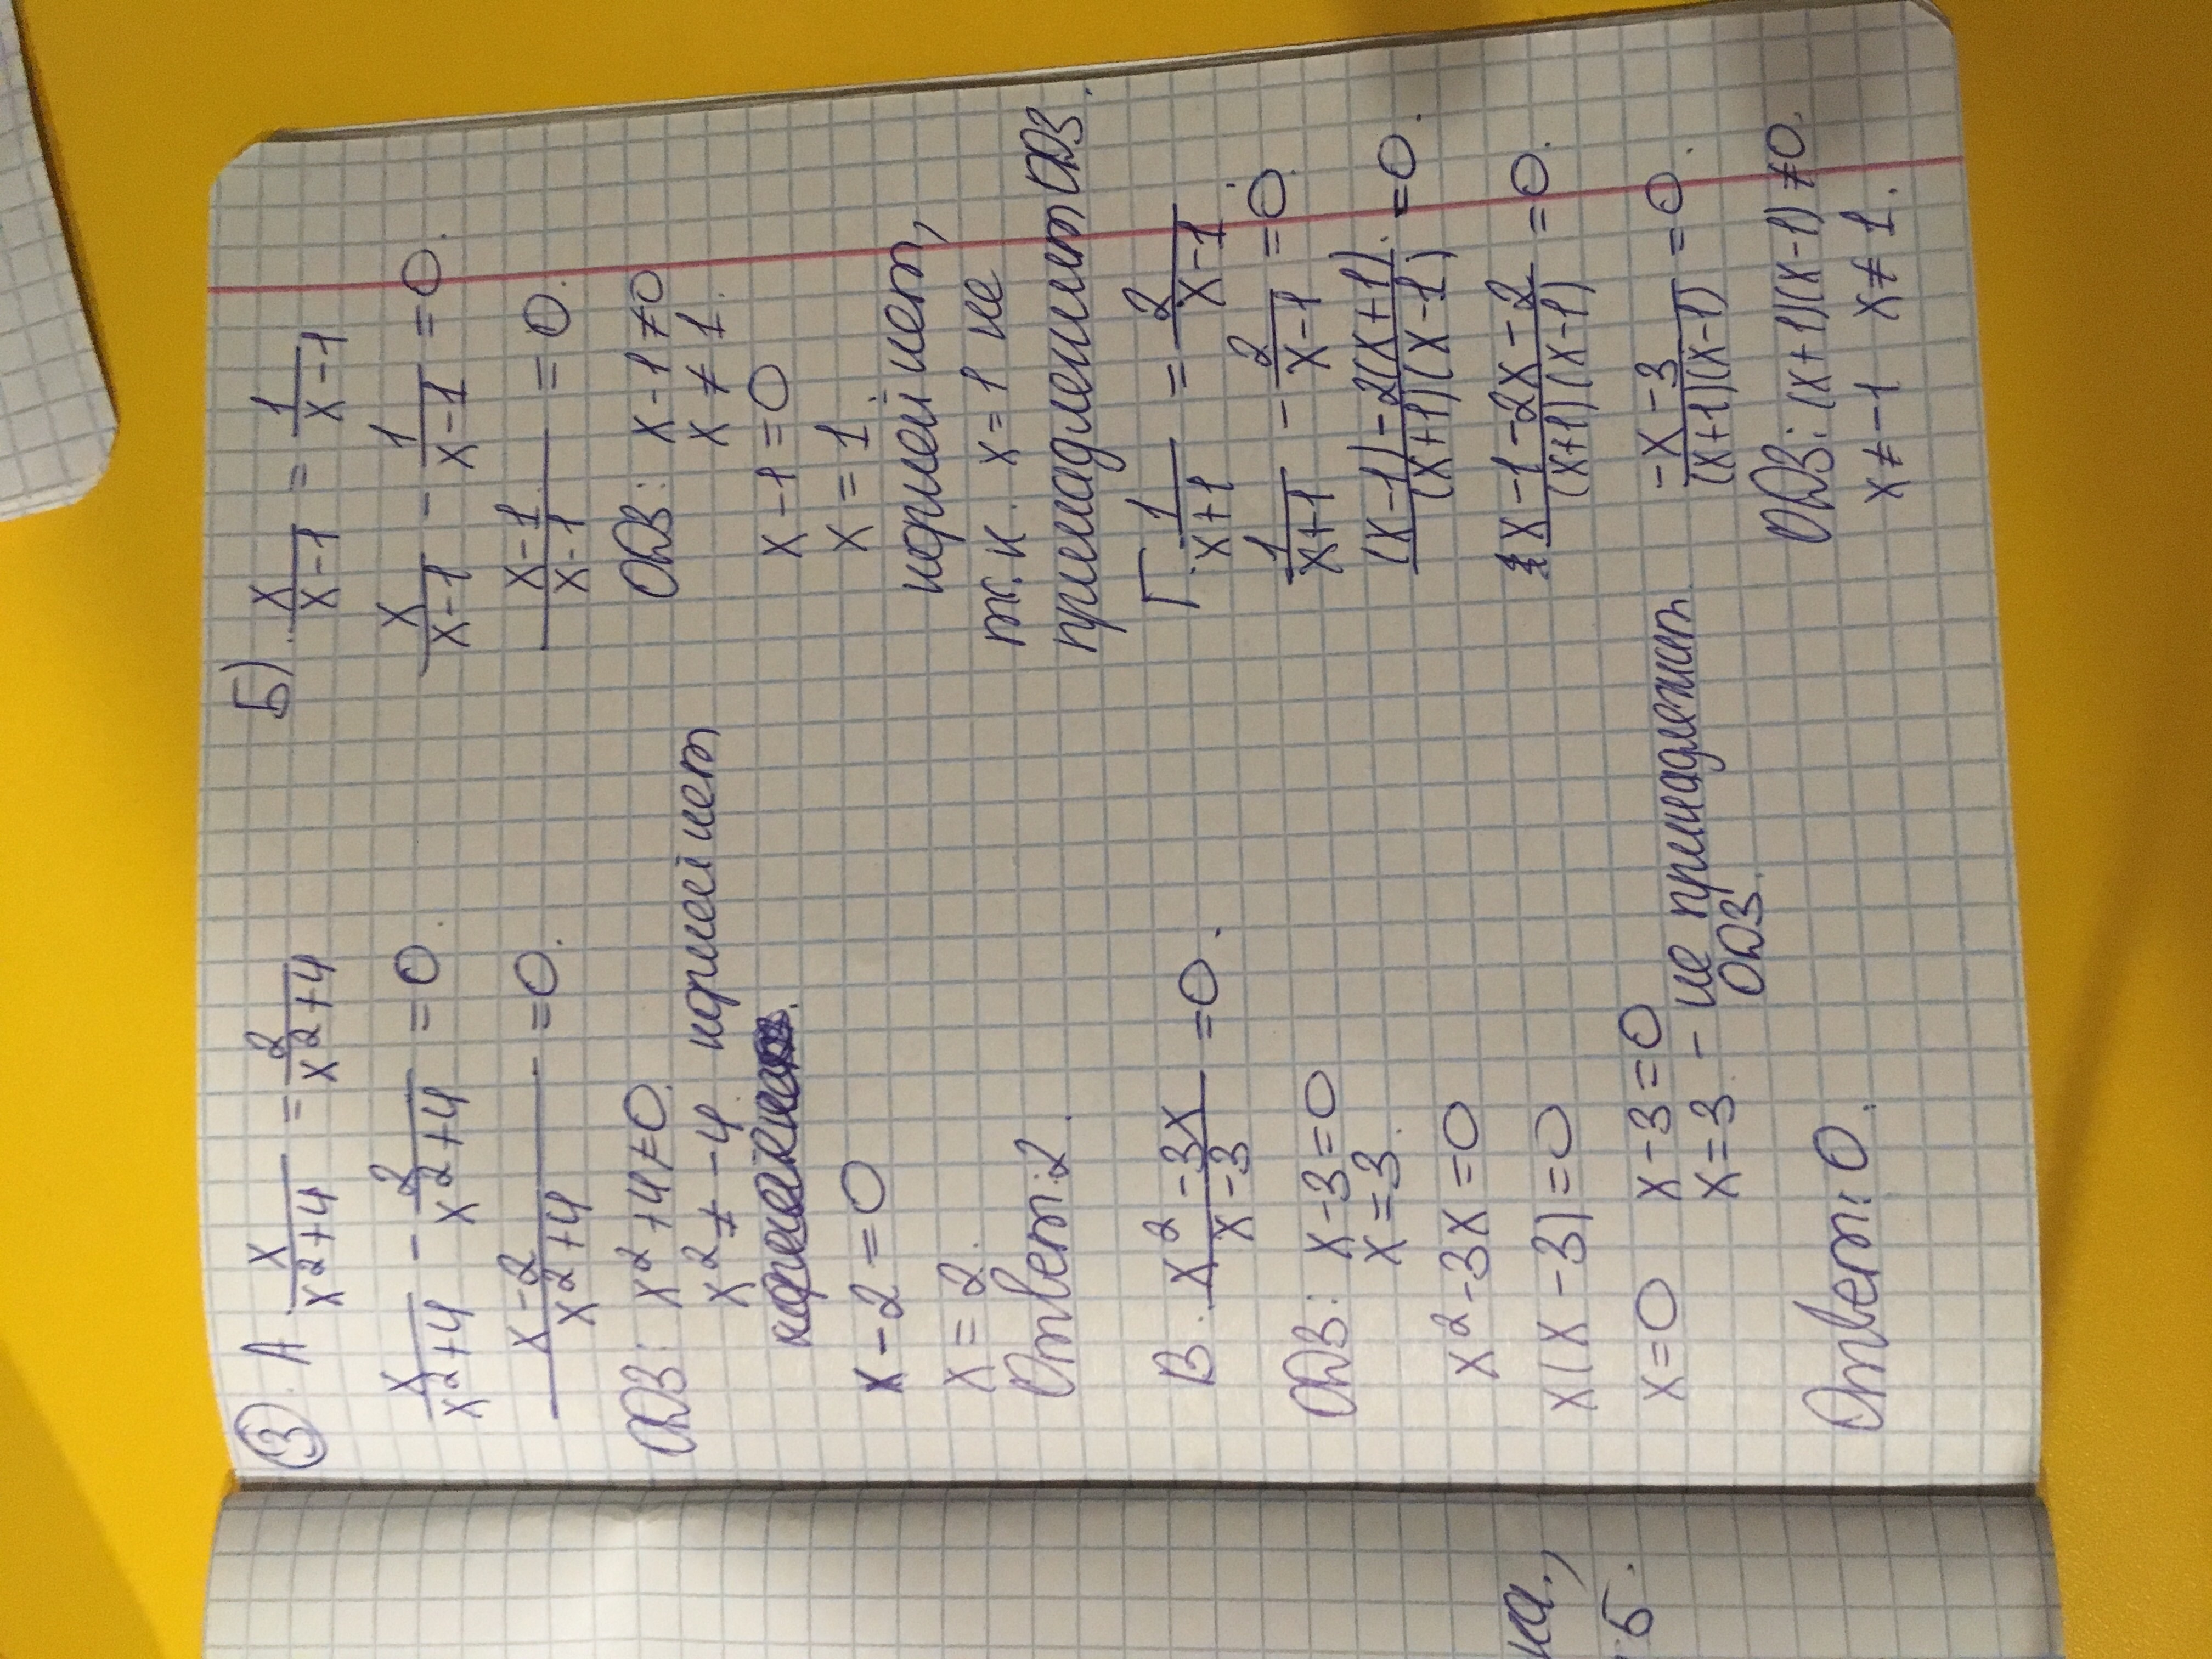 ③. А. x/(x²+4) = 2/(x²+4)
x/(x²+4) - 2/(x²+4) = 0.
(x-2)/(x²+4) = 0.
ОДЗ: x²+4≠0.
x² ≠ -4. корней нет
x-2=0
x=2.
Ответ: 2.
В. (x²-3x)/(x-3) = 0.
ОДЗ: x-3=0
x=3.
x²-3x=0
x(x-3)=0
x=0 x-3=0
x=3 - не принадлежит
ОДЗ.
Ответ: 0.
Б) x/(x-1) = 1/(x-1)
x/(x-1) - 1/(x-1) = 0.
(x-1)/(x-1) = 0.
ОДЗ: x-1≠0
x≠1.
x-1=0
x=1.
корней нет,
т.к. x=1 не
принадлежит ОДЗ.
Г. 1/(x+1) = 2/(x-1)
1/(x+1) - 2/(x-1) = 0.
((x-1)-2(x+1))/((x+1)(x-1)) = 0.
(x-1-2x-2)/((x+1)(x-1)) = 0.
(-x-3)/((x+1)(x-1)) = 0.
ОДЗ: (x+1)(x-1)≠0.
x≠-1 x≠1.
ка,
5.